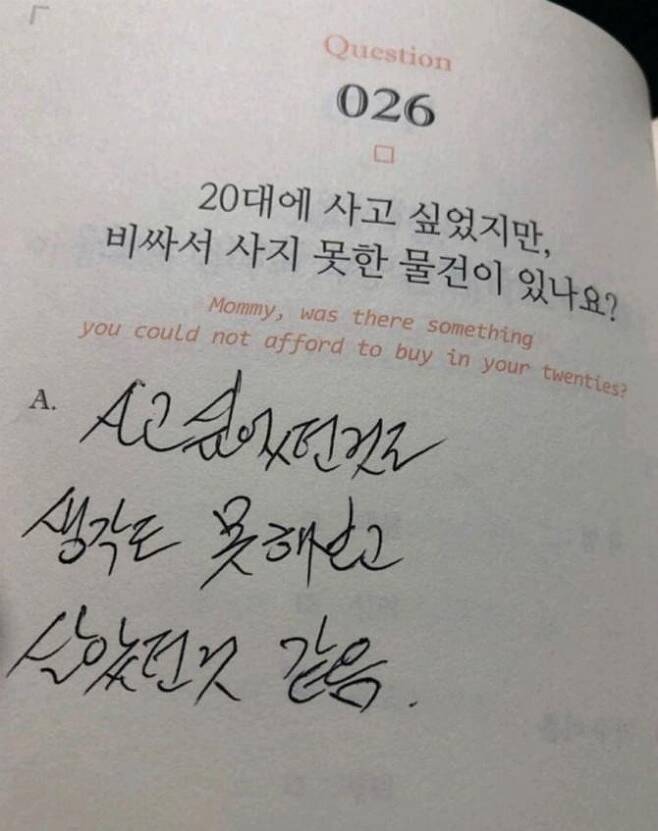 Question
026
20대에 사고 싶었지만,
비싸서 사지 못한 물건이 있나요?
Mommy, was there something
you could not afford to buy in your twenties?
A. 사고싶었던것도
생각도 못해보고
살았던것 같음.